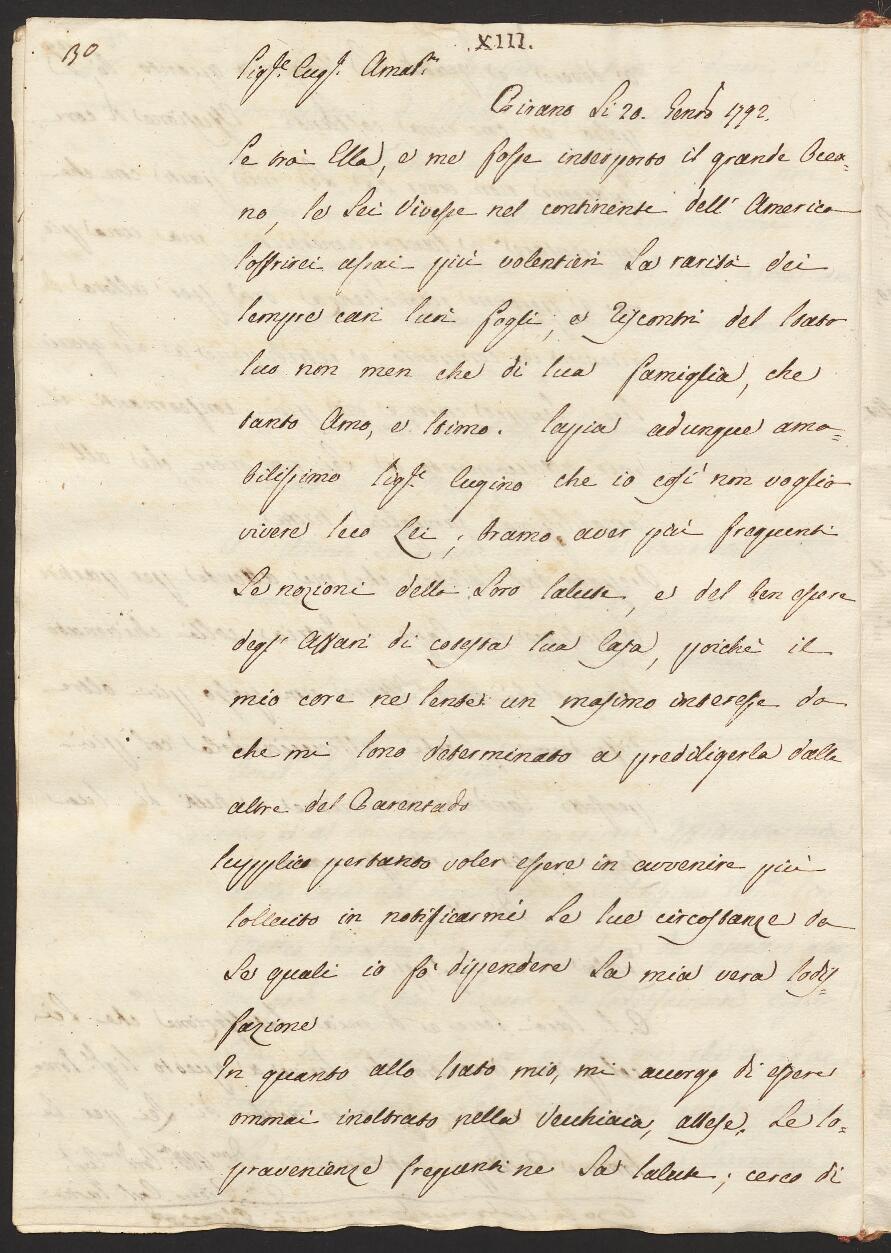 XIII.
130
Sig.re Cug.o Amat.mo
Pirano li 20. Gen.ro 1792.
Se trà Ella, e me fosse interposto il grande Ocea-
no, se Lei vivesse nel continente dell' America
soffrirei assai più volentieri la rarità dei
sempre cari suoi fogli, e riscontri del stato
suo non men che di sua famiglia, che
tanto amo, e stimo. Sapia adunque ama-
bilissimo Sig.re Cugino che io così non voglio
vivere seco Lei; bramo aver più frequenti
le nozioni della loro salute, e del ben essere
degl' affari di cotesta sua Casa, poichè il
mio core ne sente un massimo interesse da
che mi sono determinato a prediligerla dalle
altre del Parentado
Supplico pertanto voler essere in avvenire più
sollecito in notificarmi le sue circostanze da
le quali io fò dippendere la mia vera sodis-
fazione
In quanto allo stato mio, mi accorgo di essere
ommai inoltrato nella vecchiaia, attese le so-
pravenienze frequenti ne la salute; cerco di